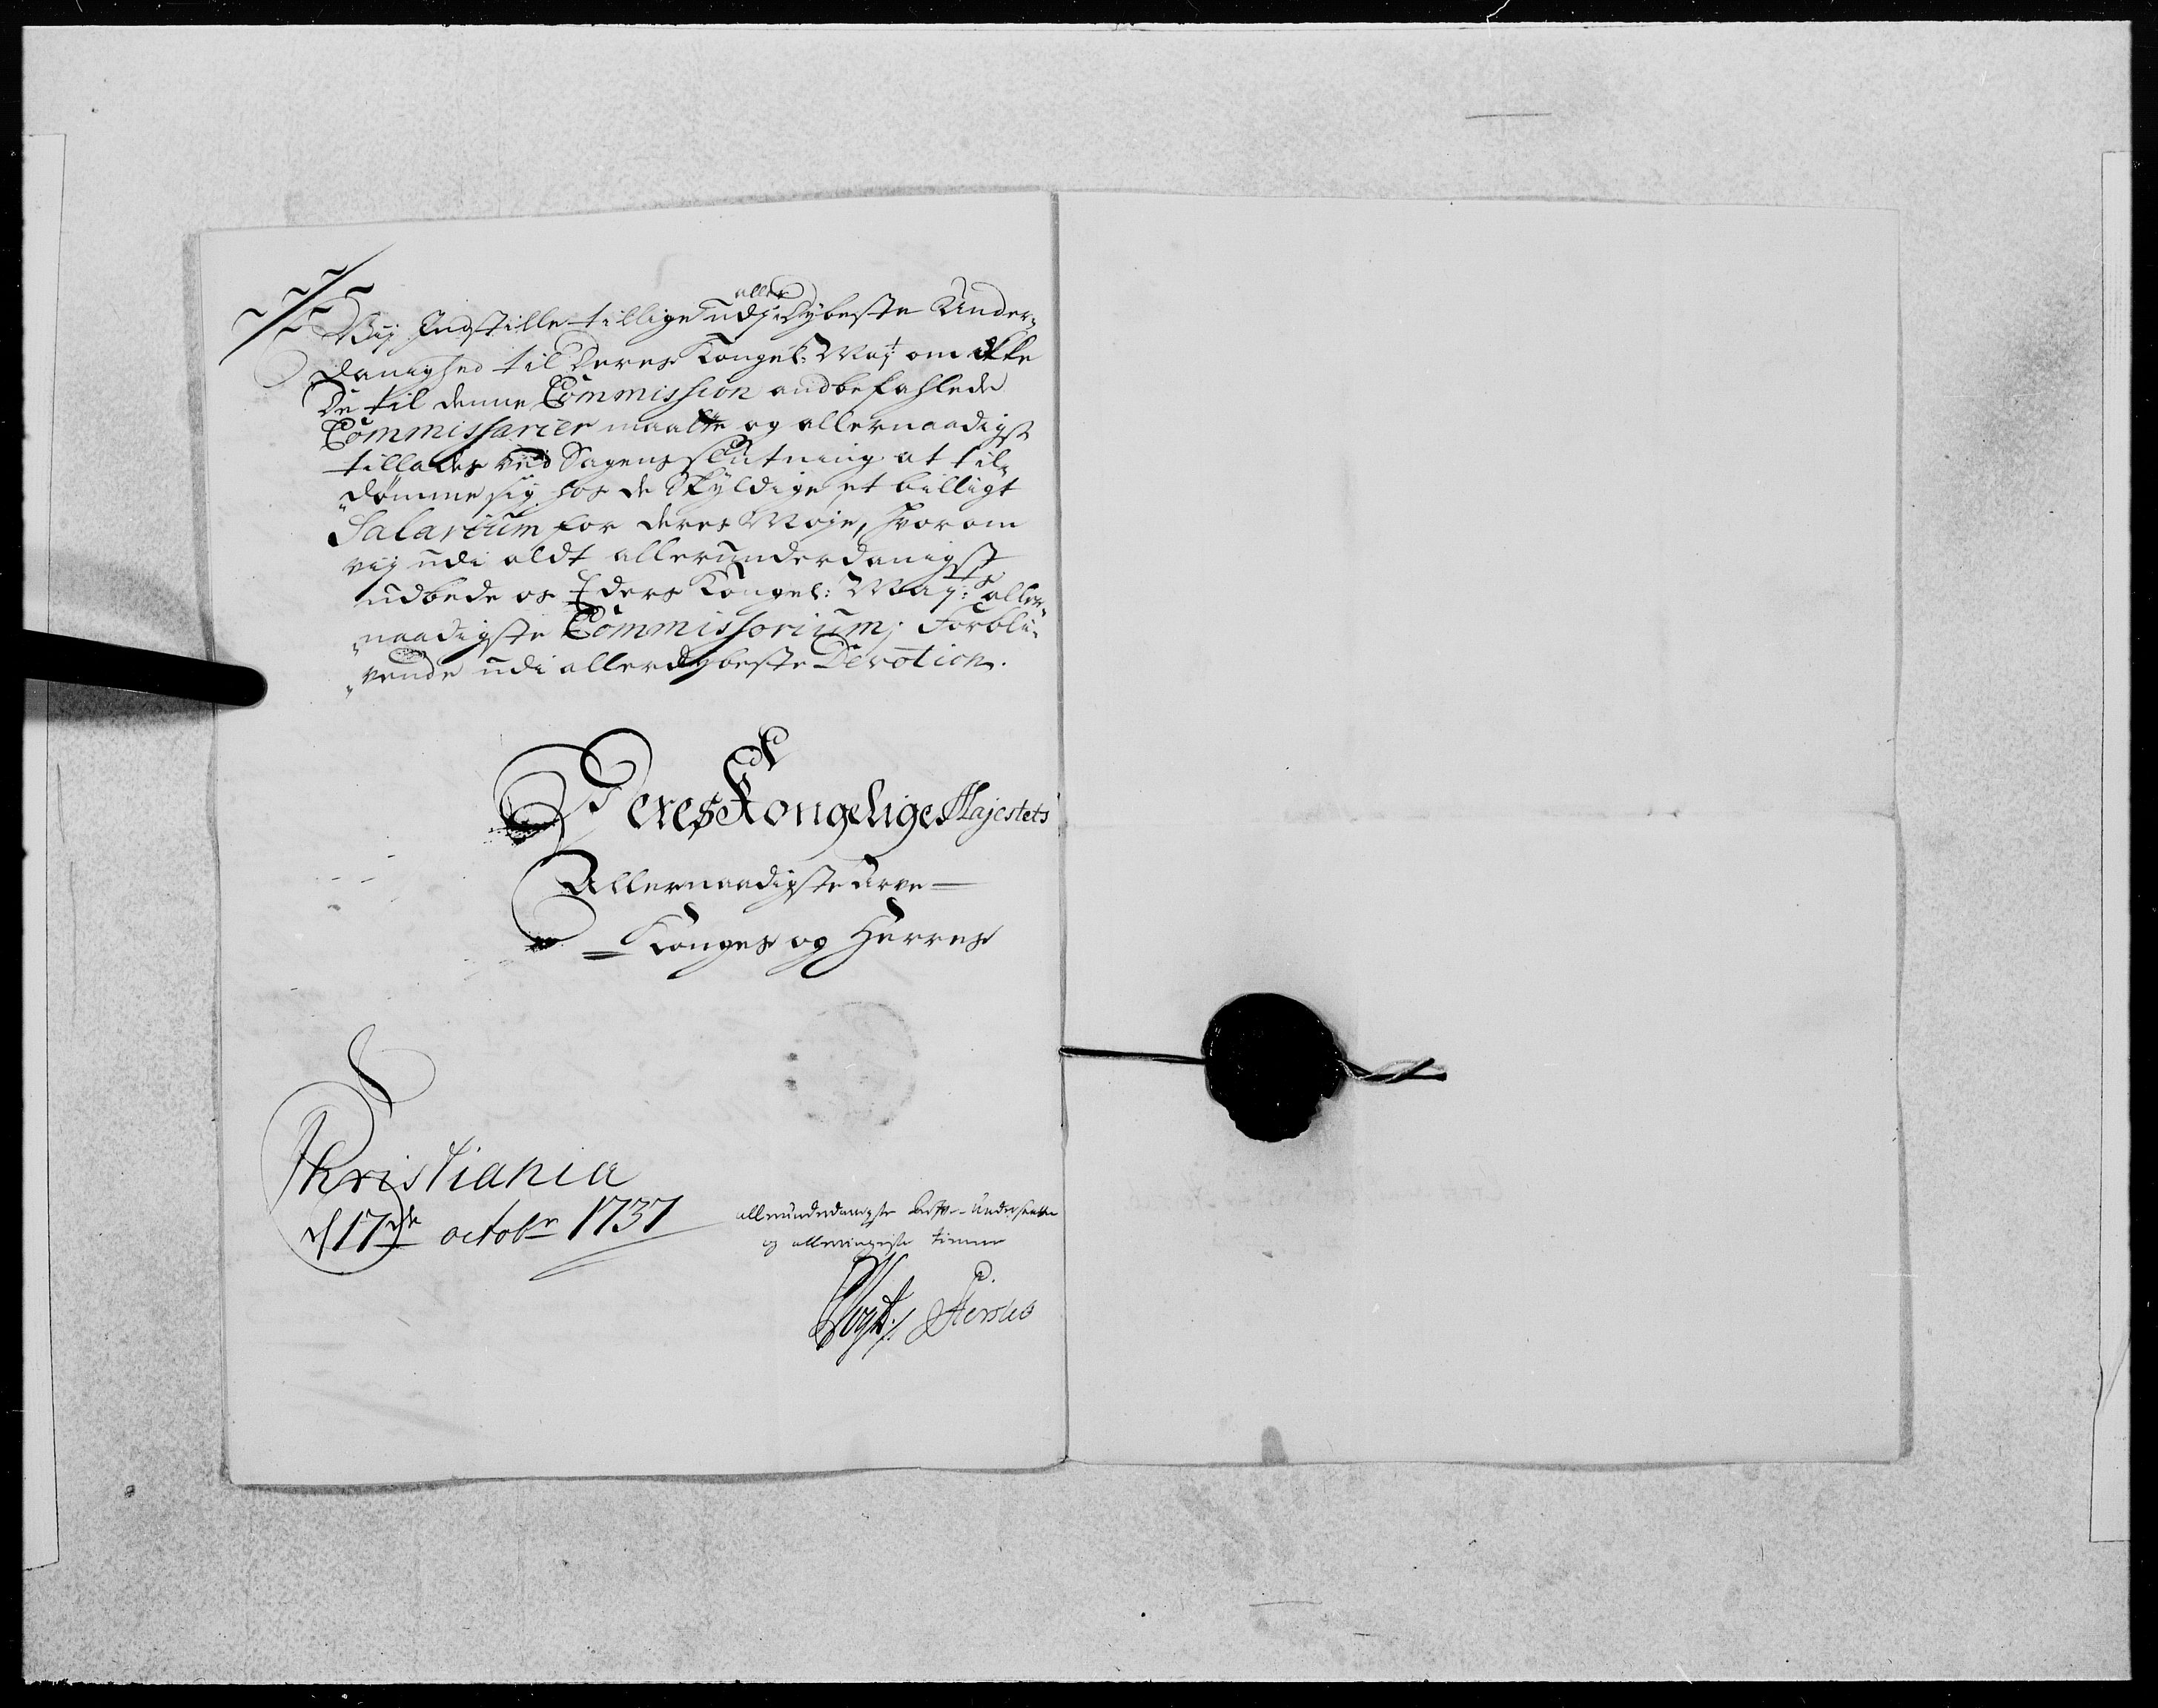 Vij Indstille tillige udj aller Dybeste Under-
danighed til Deres Kongel: Majt om ikke
De til denne Commission andbefahlede
Commissarier maatte og allernaadigst
tillades ved Sagens slutning at til-
dømme sig hos de Skyldige et billigt
Salarium for deres Møje, hvorom
vij udi aldt allerunderdanigst
udbede os Eders Kongel: Majts aller-
naadigste Commissorium; Forbli-
vende udi allerdybeste Devotion.
Deres Kongelige Majestets
Allernaadigste Arve
Konges og Herres
Christiania
d 17de octobr 1737
allerunderdanigste
og allerringeste tienere
P. Hersleb